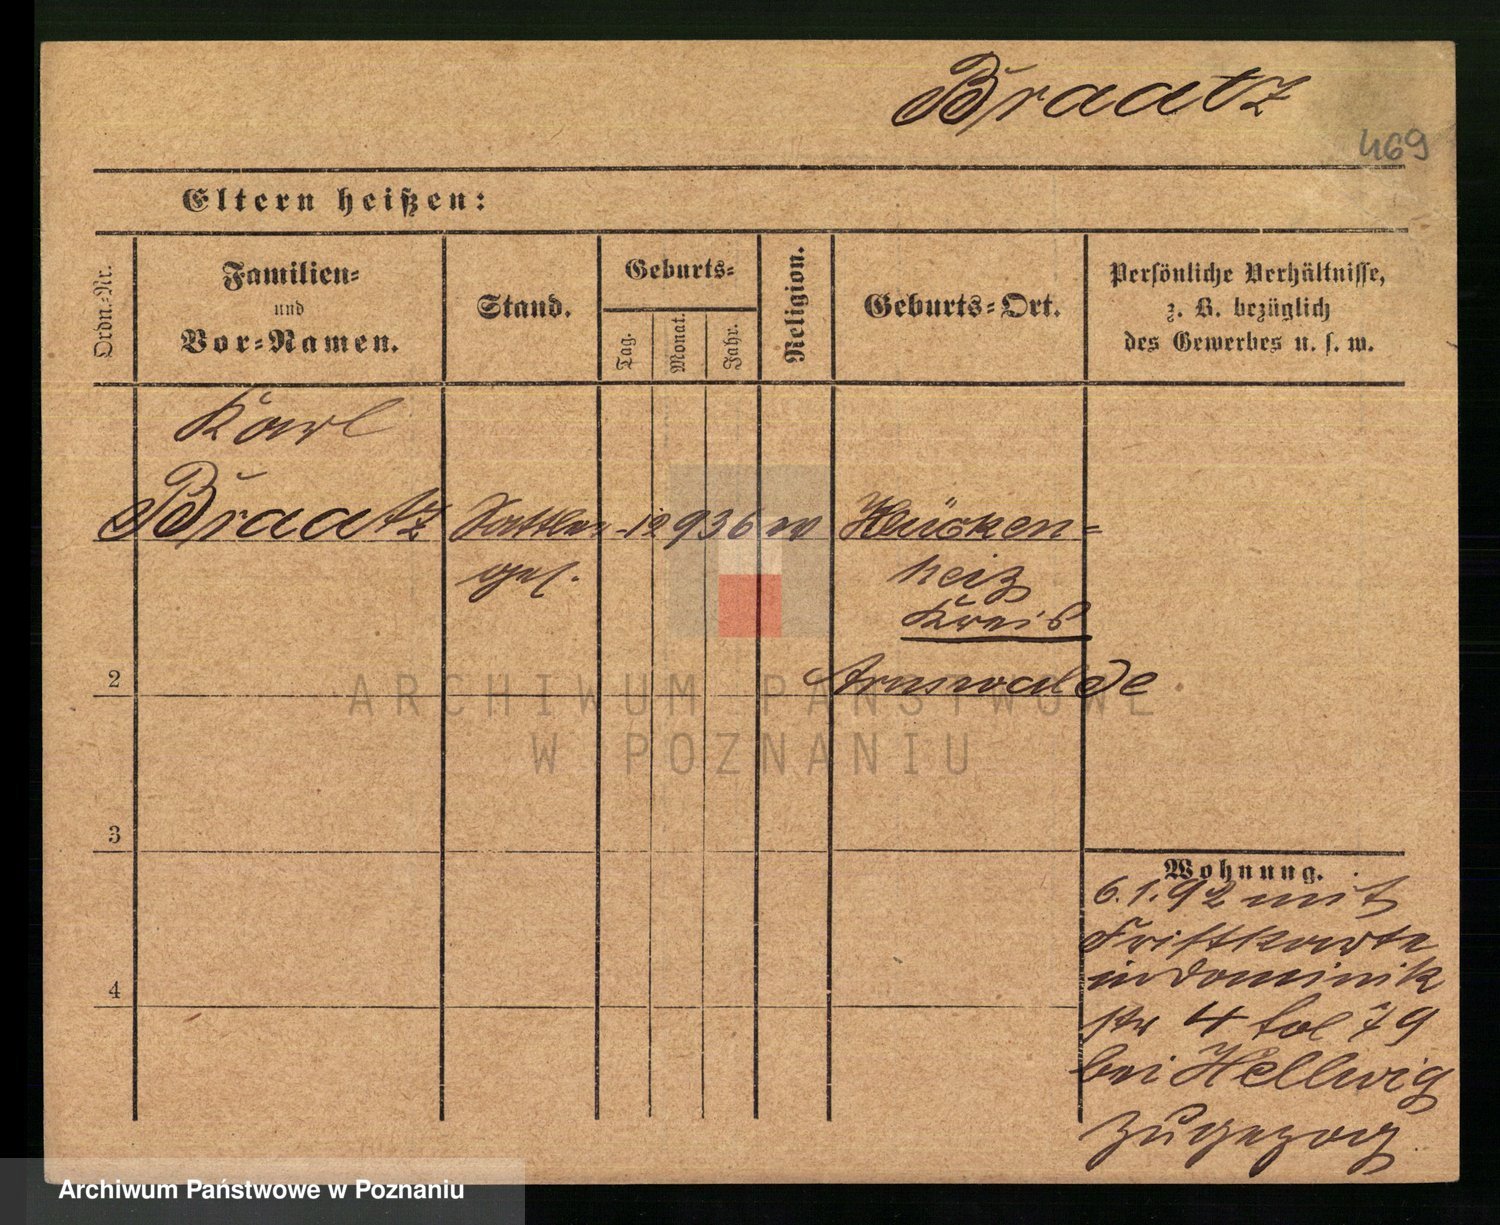 Braatz
469
Eltern heißen:
Ordn.-Nr.
Familien-
und
Vor-Namen.
Stand.
Geburts-
Tag.
Monat.
Jahr.
Religion.
Geburts-Ort.
Persönliche Verhältnisse,
z. B. bezüglich
des Gewerbes u. s. w.
Karl
Braatz Sattler 12 9 36
ges.
Kreis
Arnswalde
2
3
4
Wohnung.
6.1.92 mit
Fristkarte
in Dominik
str 4 fol 79
bei Hellwig
zugezog
ARCHIWUM PAŃSTWOWE
W POZNANIU
Archiwum Państwowe w Poznaniu